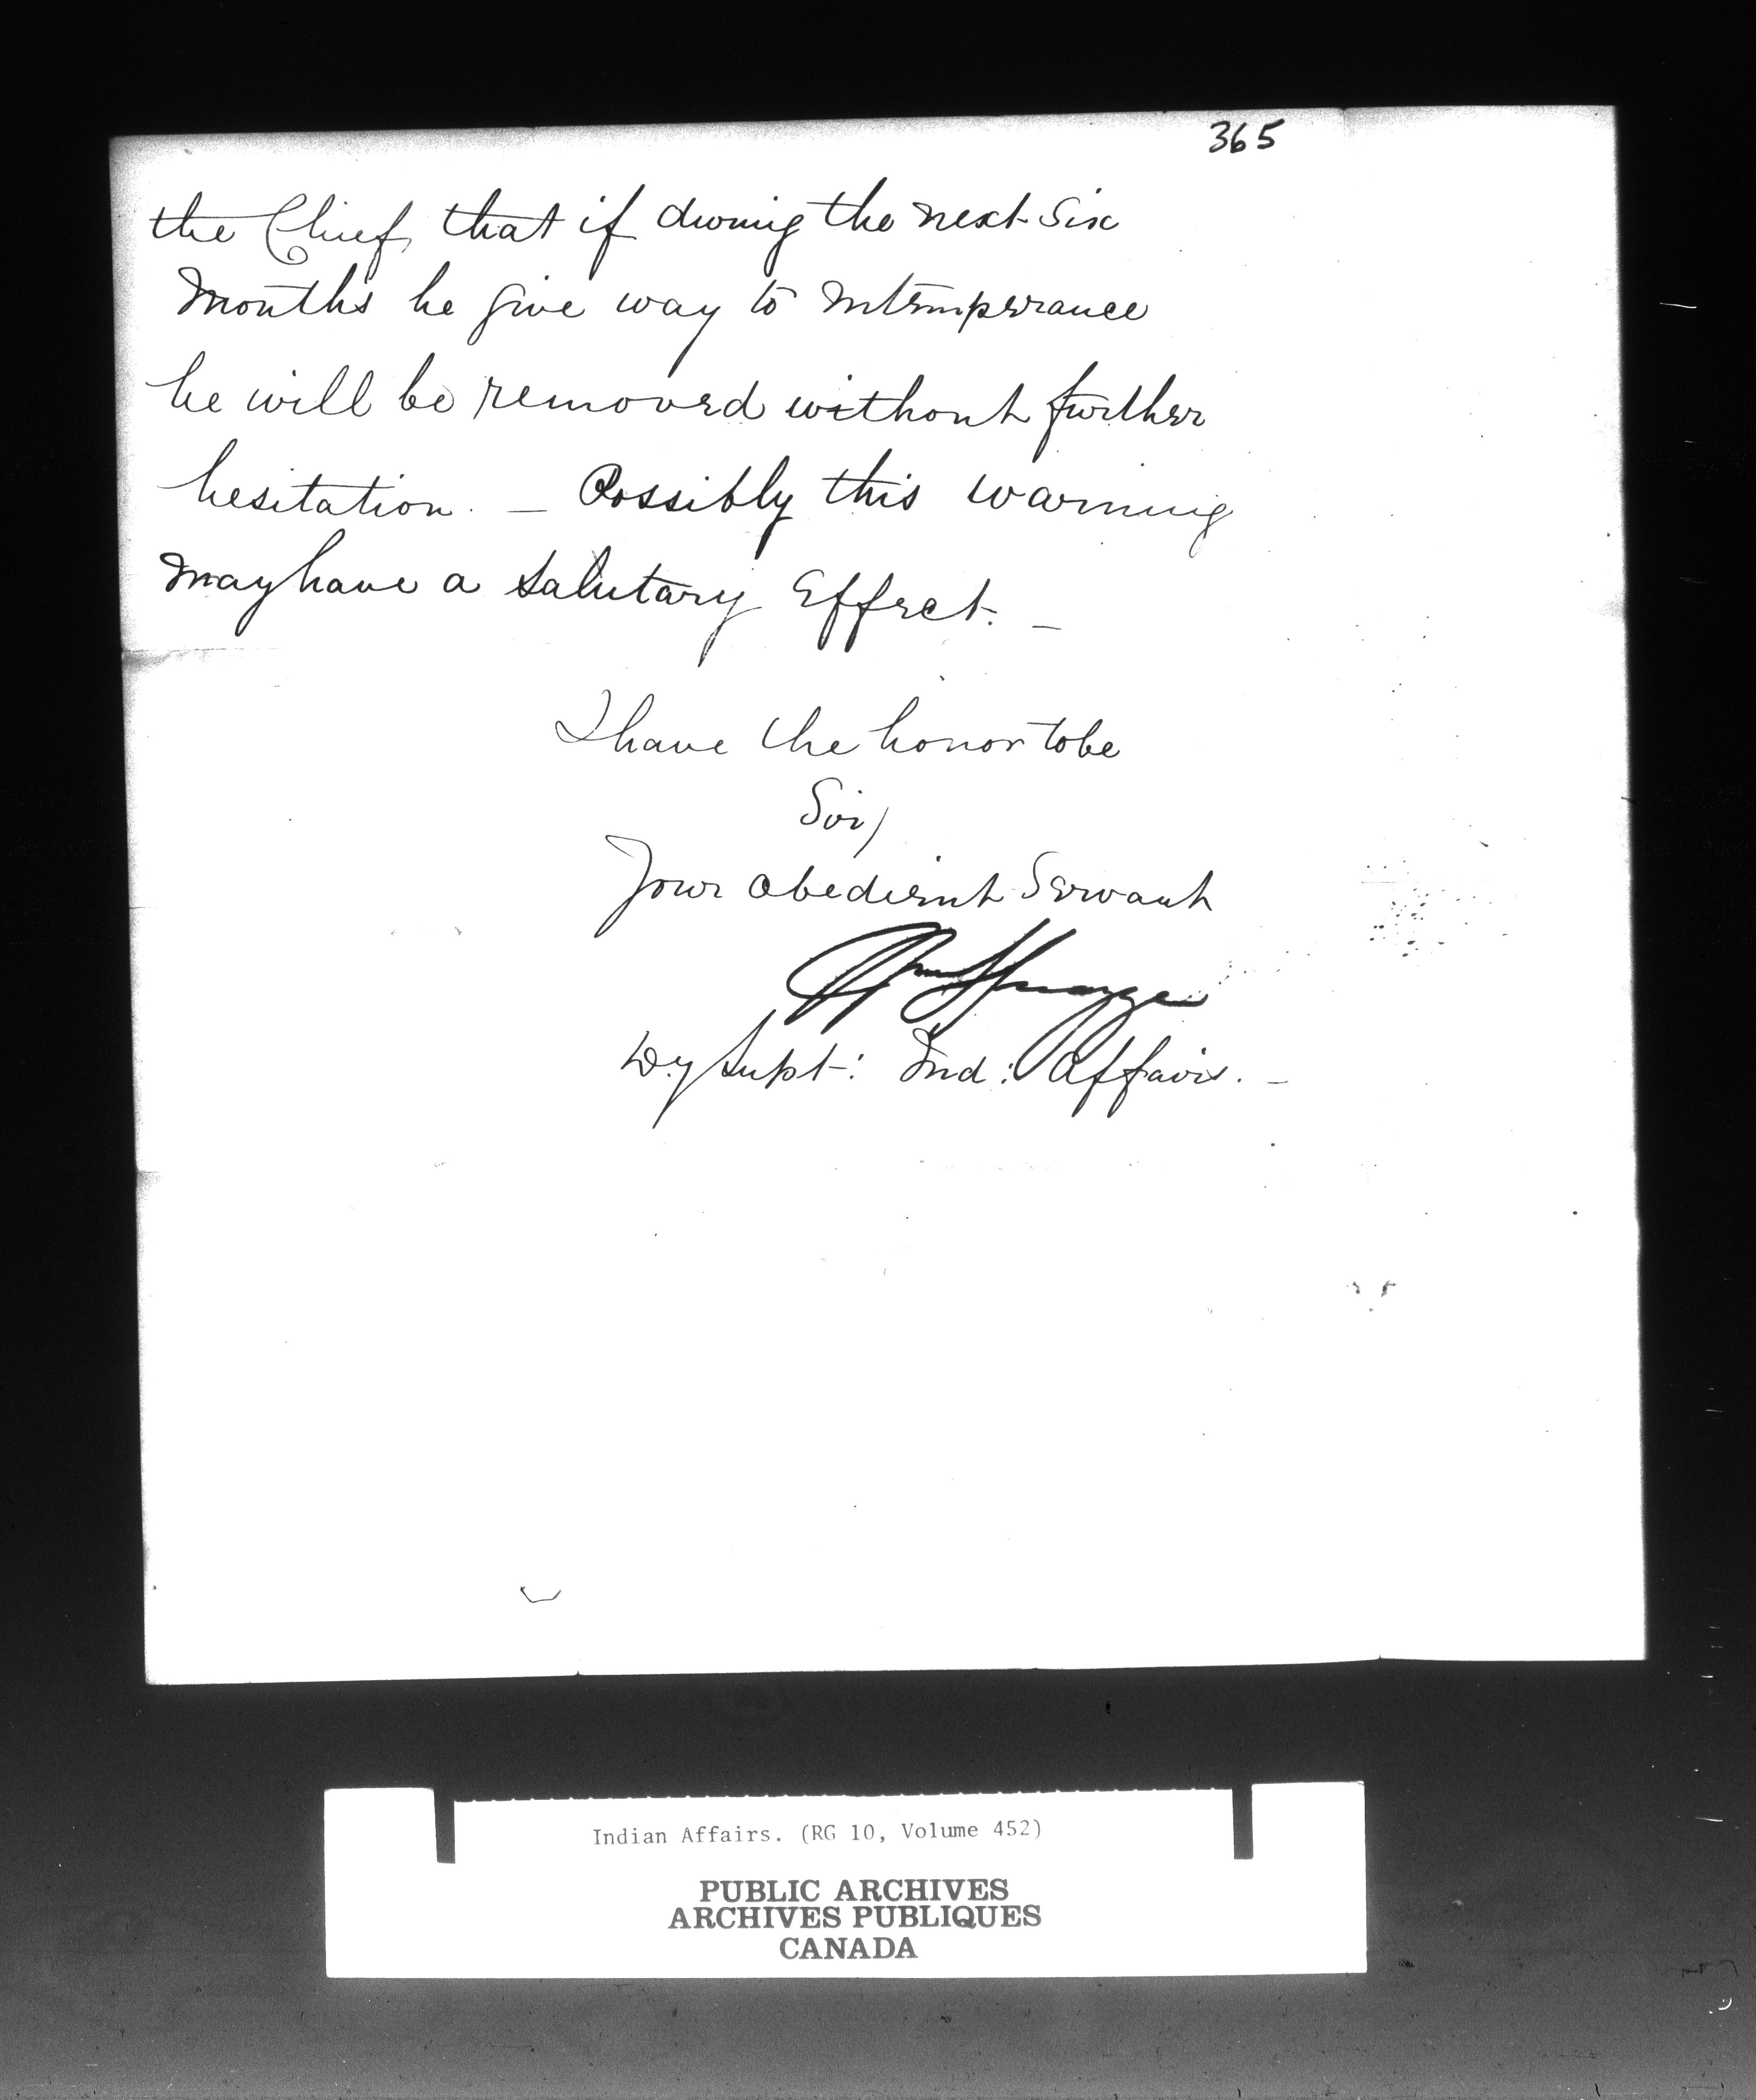 365
the Chief, that if during the next Six
Months he give way to intemperance
he will be removed without further
hesitation. — Possibly this warning
may have a salutary Effect. —
I have the honor to be
Sir,
Your obedient Servant
Spragge
Dy Supt: Ind: Affairs. —
Indian Affairs. (RG 10, Volume 452)
PUBLIC ARCHIVES
ARCHIVES PUBLIQUES
CANADA